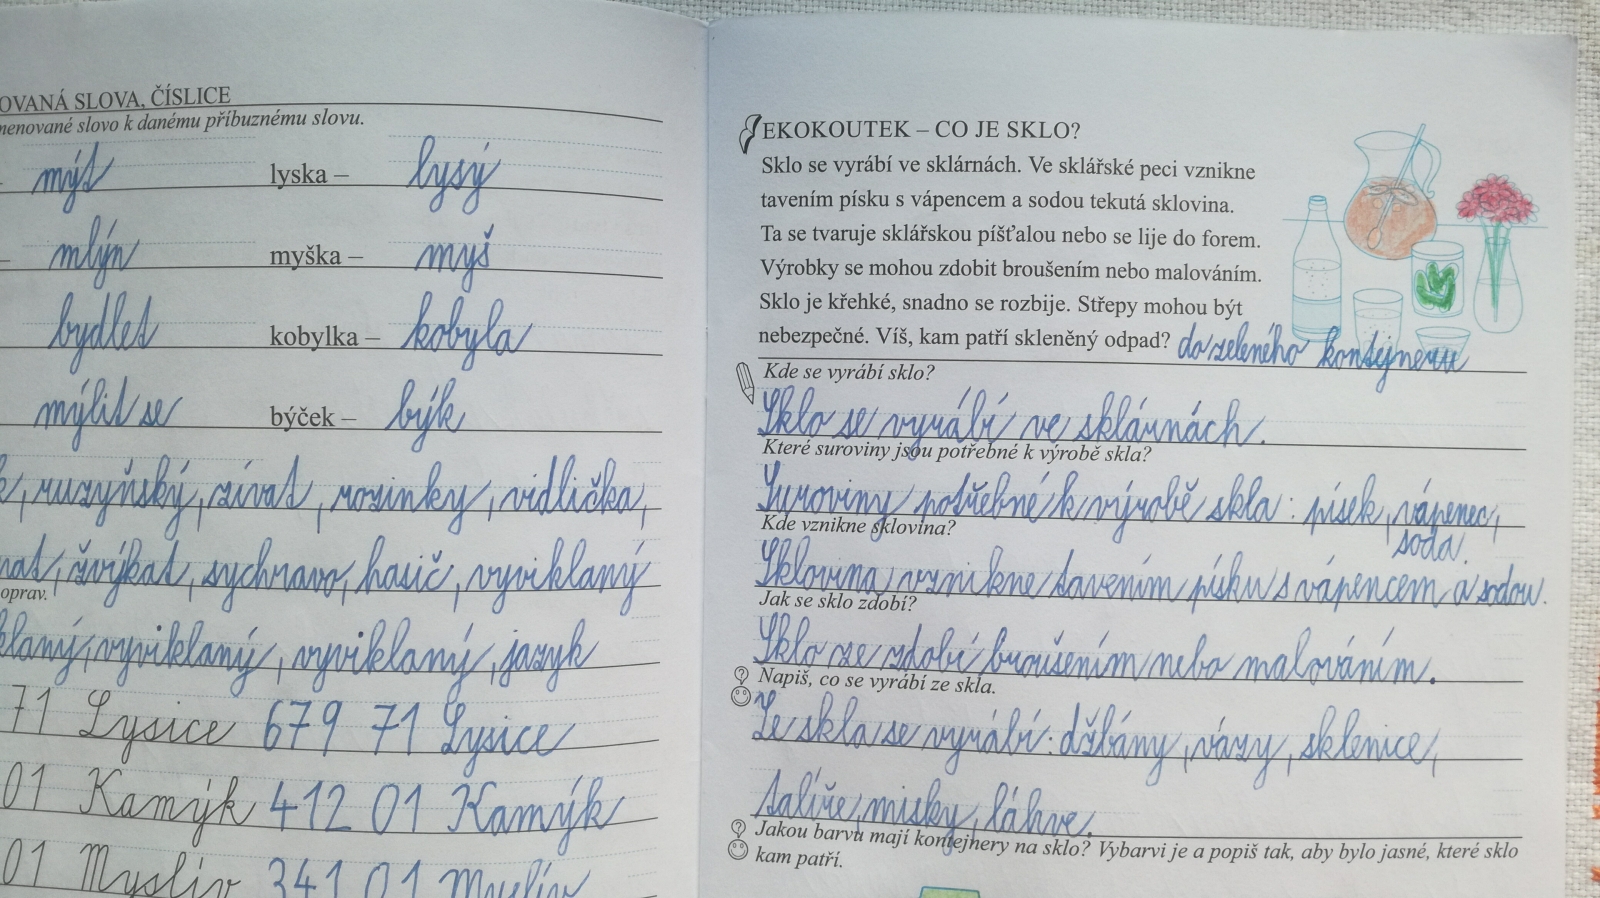 OVANÁ SLOVA, ČÍSLICE
menované slovo k danému příbuznému slovu.
– mýt lyska – lysý
– mlýn myška – myš
bydlet kobylka – kobyla
mýlit se býček – býk
k, ruzyňský, zívat, rozinky, vidlička,
nat, žvýkat, sychravo, hasič, vyviklaný
oprav.
klaný, vyviklaný, vyviklaný, jazyk
71 Lysice 679 71 Lysice
01 Kamýk 412 01 Kamýk
01 Myslív 341 01 Myslív
EKOKOUTEK – CO JE SKLO?
Sklo se vyrábí ve sklárnách. Ve sklářské peci vznikne
tavením písku s vápencem a sodou tekutá sklovina.
Ta se tvaruje sklářskou píšťalou nebo se lije do forem.
Výrobky se mohou zdobit broušením nebo malováním.
Sklo je křehké, snadno se rozbije. Střepy mohou být
nebezpečné. Víš, kam patří skleněný odpad? do zeleného kontejneru
Kde se vyrábí sklo?
Sklo se vyrábí ve sklárnách.
Které suroviny jsou potřebné k výrobě skla?
Suroviny potřebné k výrobě skla: písek, vápenec,
soda.
Kde vznikne sklovina?
Sklovina vznikne tavením písku s vápencem a sodou.
Jak se sklo zdobí?
Sklo se zdobí broušením nebo malováním.
Napiš, co se vyrábí ze skla.
Ze skla se vyrábí: džbány, vázy, sklenice,
talíře, misky, láhve.
Jakou barvu mají kontejnery na sklo? Vybarvi je a popiš tak, aby bylo jasné, které sklo
kam patří.